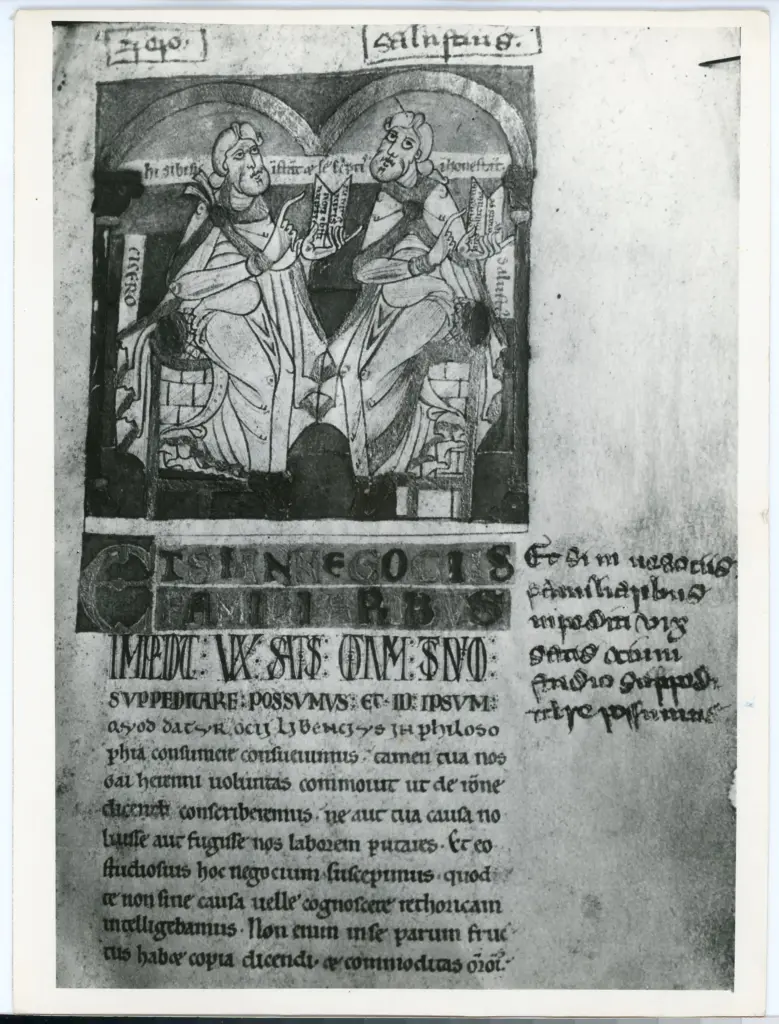 Salustius.
CICERO
Salusti
ETSI IN NEGOCIIS
FAMILIARIBVS
IMPEDITI VIX SATIS OTIVM STVDIO
SVPPEDITARE: POSSVMVS: ET: ID: IPSVM:
QVOD DATVR OCII LIBENCIVS IN philoso
phia consumere consueuimus. tamen tua nos
Gai herenni uoluntas commouit ut de rōne
dicendi conscriberemus. ne aut tua causa no
luisse aut fugisse nos laborem putares. Et eo
studiosius hoc negocium suscepimus. quod
te non sine causa uelle cognoscere rethoricam
intelligebamus. Non enim in se parum fruc
tus habet copia dicendi. & commoditas orōī.
Et si in negociis
familiaribus
inpediti vix
satis ocium
studio suppedi
tare possumus